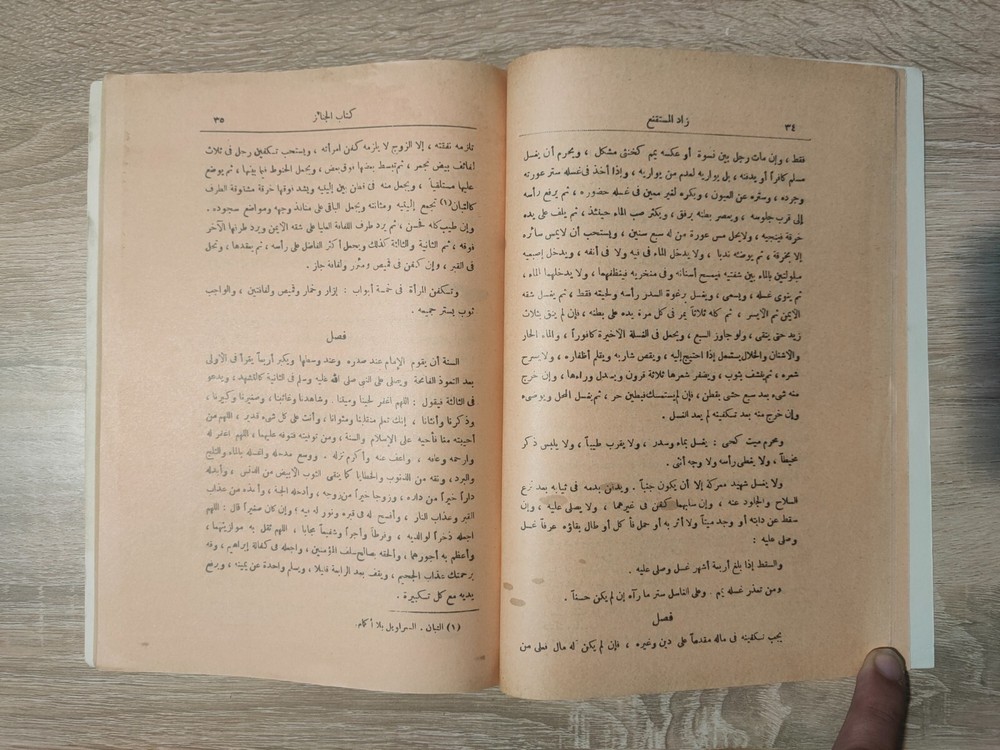 ٣٤
زاد المستقنع
فقط ، وإن مات رجل بين نسوة أو عكسه يمم كخنثى مشكل ، ويحرم أن يغسل
مسلم كافراً أو يدفنه ، بل يواريه لعدم من يواريه ، وإذا أخذ فى غسله ستر عورته
وجرده ، وستره عن العيون ، ويكره لغير معين فى غسله حضوره ، ثم يرفع رأسه
إلى قرب جلوسه ، ويعصر بطنه برفق ، ويكثر صب الماء حينئذ ، ثم يلف على يده
خرقة فينجيه ، ولا يحل مس عورة من له سبع سنين ، ويستحب أن لا يمس سائره
إلا بخرقة ، ثم يوضئه ندبا ، ولا يدخل الماء فى فيه ولا فى أنفه ، ويدخل إصبعيه
مبلولتين بالماء بين شفتيه فيمسح أسنانه وفى منخريه فينظفهما ، ولا يدخلهما الماء ،
ثم ينوى غسله ، ويسمى ، ويغسل برغوة السدر رأسه ولحيته فقط ، ثم يغسل شقه
الأيمن ثم الأيسر ، ثم كله ثلاثاً يمر فى كل مرة يده على بطنه ، فإن لم ينق بثلاث
زيد حتى ينقى ، ولو جاوز السبع ، ويجعل فى الغسلة الأخيرة كافوراً ، والماء الحار
والأشنان والخلال يستعمل إذا احتيج إليه ، ويقص شاربه ويقلم أظفاره ، ولا يسرح
شعره ، ثم ينشف بثوب ، ويضفر شعرها ثلاثة قرون ويسدل وراءها ، وإن خرج
منه شىء بعد سبع حشى بقطن ، فإن لم يستمسك فبطين حر ، ثم يغسل المحل ويوضىء
وإن خرج منه بعد تكفينه لم يعد الغسل .
ومحرم ميت كحى : يغسل بماء وسدر ، ولا يقرب طيباً ، ولا يلبس ذكر
مخيطاً ، ولا يغطى رأسه ولا وجه أنثى .
ولا يغسل شهيد معركة إلا أن يكون جنباً . ويدفن بدمه فى ثيابه بعد نزع
السلاح والجلود عنه ، وإن سلبها كفن فى غيرهما ، ولا يصلى عليه ، وإن
سقط عن دابته أو وجد ميتاً ولا أثر به أو حمل فأكل أو طال بقاؤه عرفاً غسل
وصلى عليه :
والسقط إذا بلغ أربعة أشهر غسل وصلى عليه .
ومن تعذر غسله يمم . وعلى الغاسل ستر ما رآه إن لم يكن حسناً .
فصل
يجب تكفينه فى ماله مقدماً على دين وغيره ، فإن لم يكن له مال فعلى من
كتاب الجنائز
٣٥
تلزمه نفقته ، إلا الزوج لا يلزمه كفن امرأته ، ويستحب تكفين رجل فى ثلاث
لفائف بيض تجمر ، ثم تبسط بعضها فوق بعض ، ويجعل الحنوط فيما بينها ، ثم يوضع
عليها مستلقياً ، ويجعل منه فى قطن بين إليتيه ويشد فوقها خرقة مشقوقة الطرف
كالتبان(١) تجمع إليتيه ومثانته ويجعل الباقى على منافذ وجهه ومواضع سجوده .
وإن طيب كله فحسن ، ثم يرد طرف اللفافة العليا على شقه الأيمن ويرد طرفها الآخر
فوقه ، ثم الثانية والثالثة كذلك ويجعل أكثر الفاضل على رأسه ، ثم يعقدها ، وتحل
فى القبر ، وإن كفن فى قميص ومئزر ولفافة جاز .
وتكفن المرأة فى خمسة أثواب : إزار وخمار وقميص ولفافتين ، والواجب
ثوب يستر جميعه .
فصل
السنة أن يقوم الإمام عند صدره وعند وسطها ويكبر أربعاً يقرأ فى الأولى
بعد التعوذ الفاتحة ويصلى على النبى صلى الله عليه وسلم فى الثانية كالتشهد ، ويدعو
فى الثالثة فيقول : اللهم اغفر لحينا وميتنا . وشاهدنا وغائبنا ، وصغيرنا وكبيرنا ،
وذكرنا وأنثانا ، إنك تعلم منقلبنا ومثوانا ، وأنت على كل شىء قدير ، اللهم من
أحييته منا فأحيه على الإسلام والسنة ، ومن توفيته فتوفه عليهما ، اللهم اغفر له
وارحمه وعافه ، واعف عنه وأكرم نزله . ووسع مدخله واغسله بالماء والثلج
والبرد ، ونقه من الذنوب والخطايا كما ينقى الثوب الأبيض من الدنس ، وأبدله
داراً خيراً من داره ، وزوجا خيراً من زوجه ، وأدخله الجنة ، وأعذه من عذاب
القبر وعذاب النار ، وأفسح له فى قبره ونور له فيه ؛ وإن كان صغيراً قال : اللهم
اجعله ذخراً لوالديه ، وفرطاً وأجراً وشفيعاً مجابا ، اللهم ثقل به موازينهما ،
وأعظم به أجورهما ، وألحقه بصالح سلف المؤمنين ، واجعله فى كفالة إبراهيم ، وقه
برحمتك عذاب الجحيم ، ويقف بعد الرابعة قليلا ، ويسلم واحدة عن يمينه ، ويرفع
يديه مع كل تكبيرة .
(١) التبان . السراويل بلا أكمام.